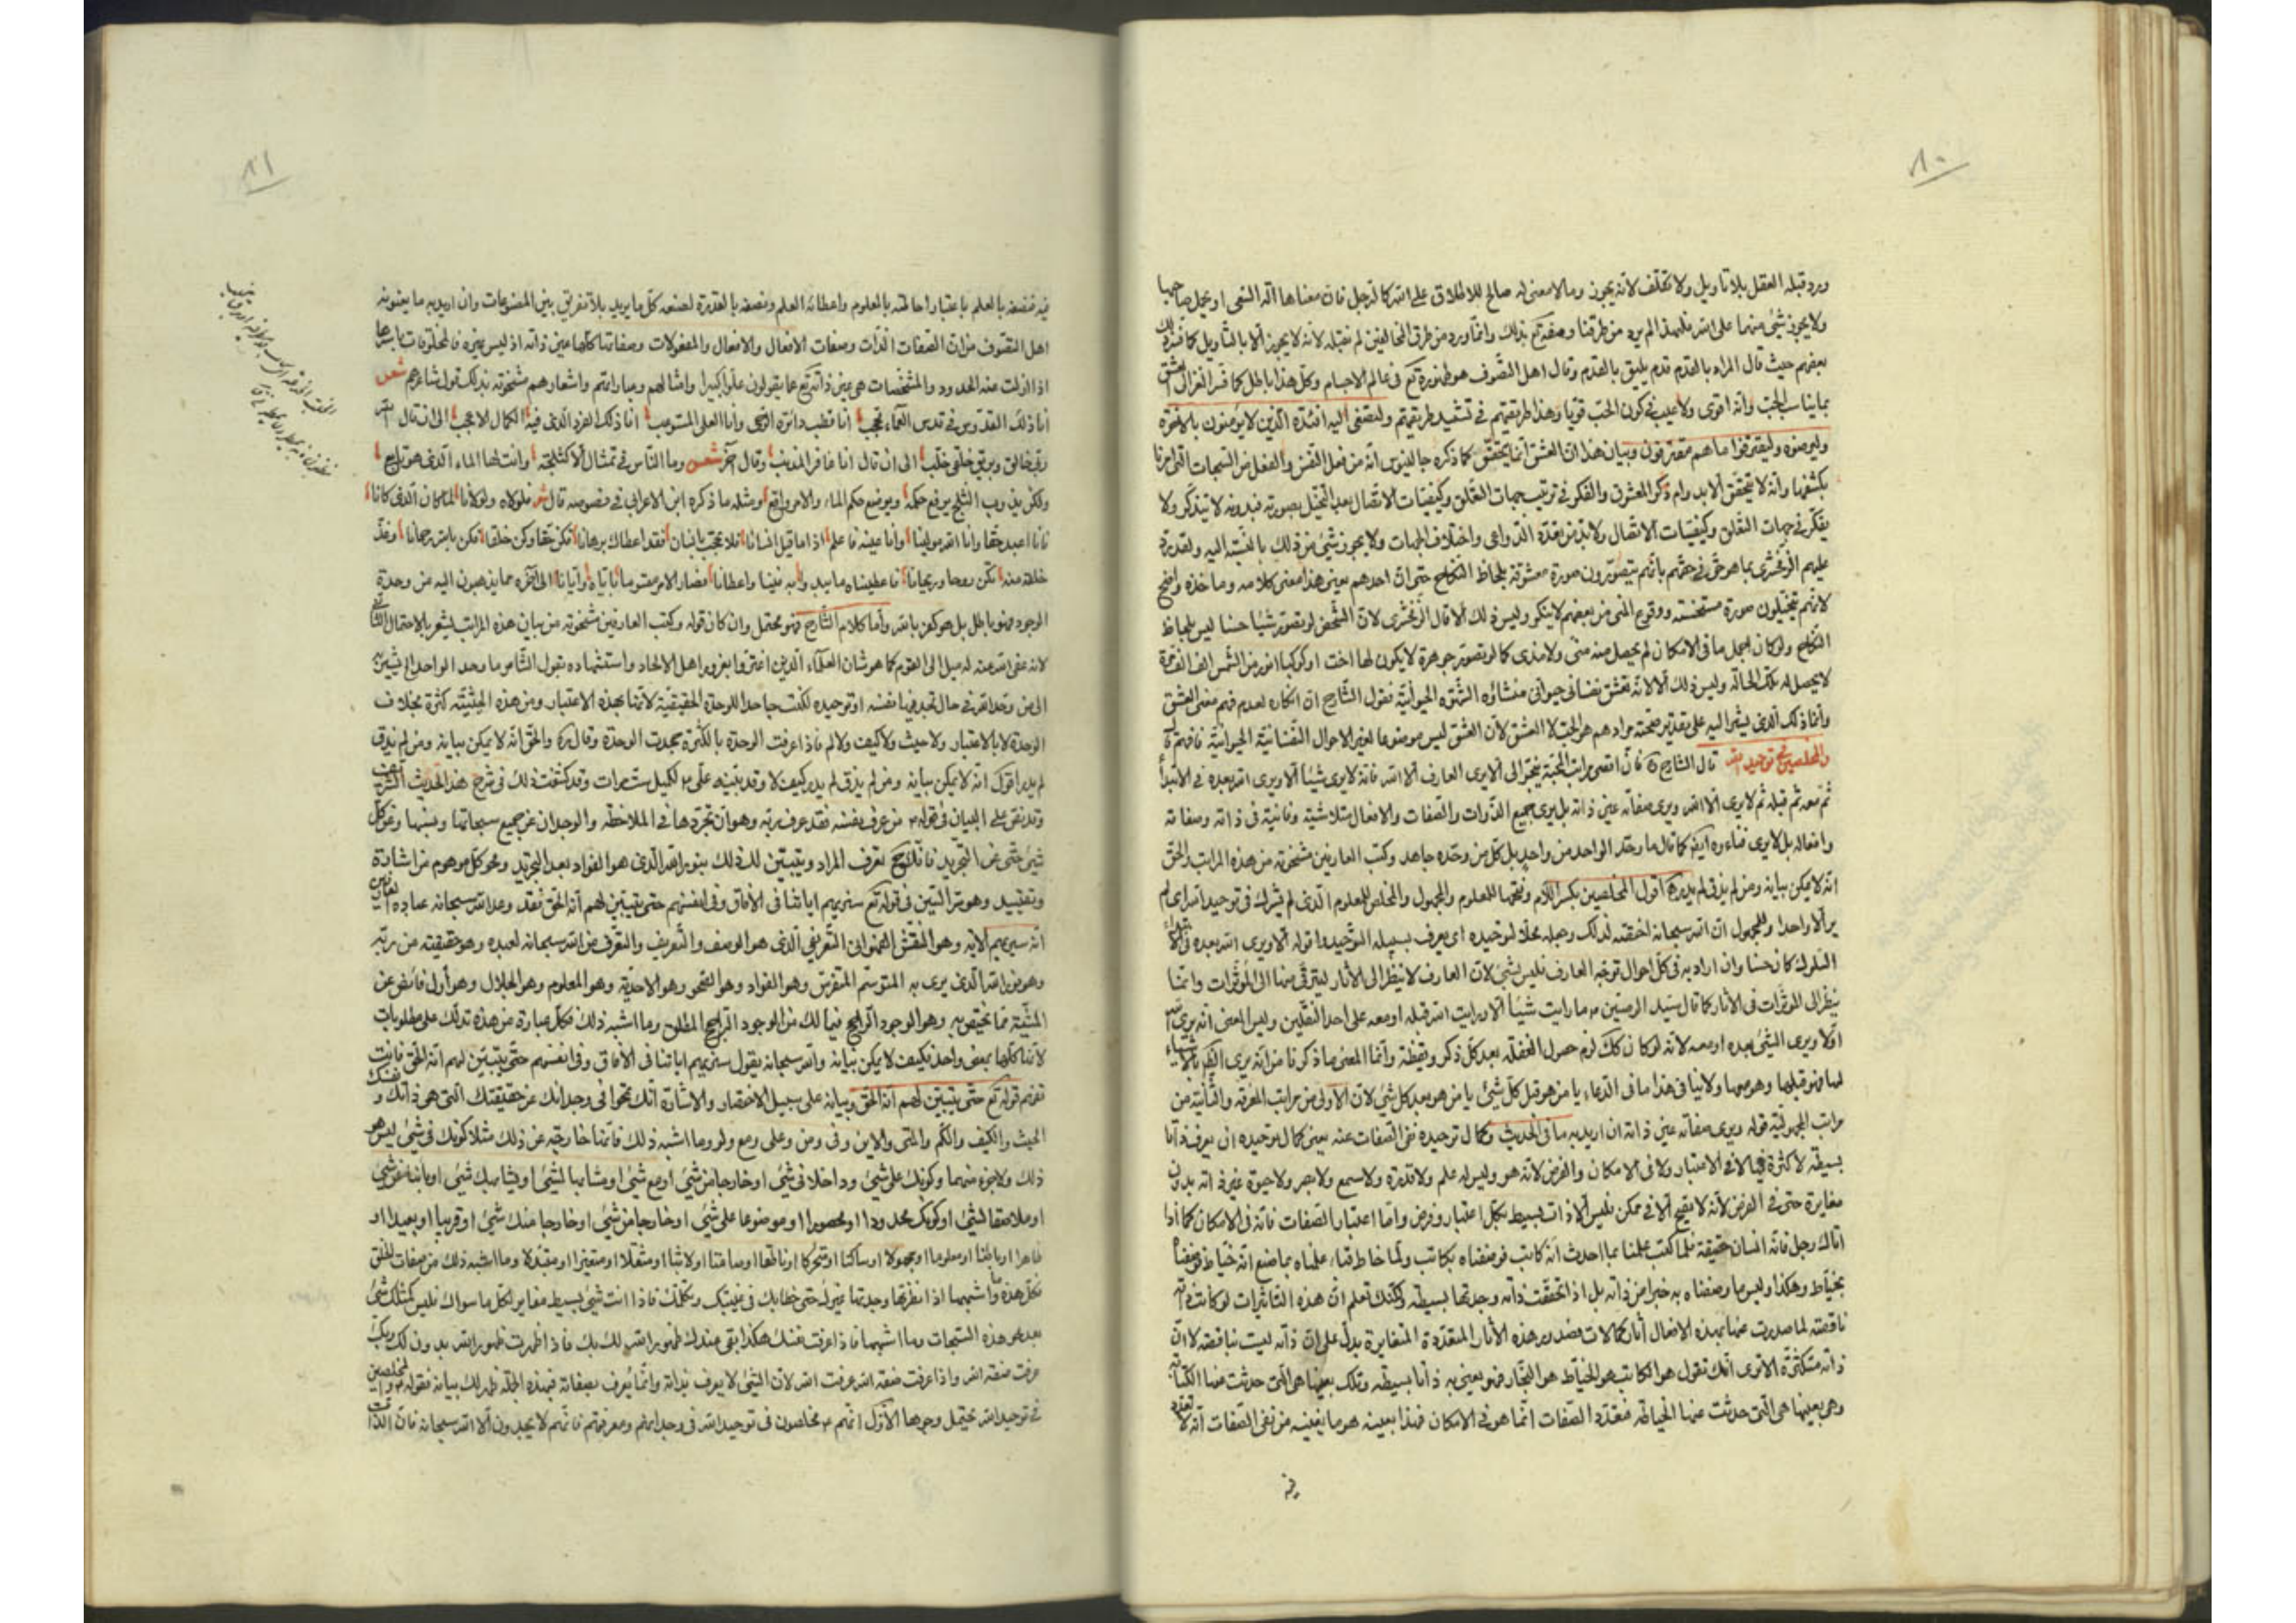 ٨٠
ورد قبله العقل بلا تأويل ولا تكلف لانه يجوز وما لا معنى له صالح للاطلاق على الله كالرجل فان معناها آلة السعى او يحمل صاحبها
ولا يجوز شئ منهما على الله فلهذا لم يرد من طرقنا وصفه تع بذلك وانما ورد من طرق المخالفين لم نقبله لانه لا يجوز الا بالتأويل كما
بعضهم حيث قال المراد بالقدم قدم يليق بالقدم وقال اهل التصوف هو ظهوره تع فى عالم الاجسام وكل هذا باطل كما فسر الغزالى العشق
بما يناسب الحب وانه اقوى ولا عيب فى كون الحب قويا وهذا طريقتهم فى تشييد طريقتهم ولتصغى اليه افئدة الذين لا يؤمنون بالاخرة
وليرضوه وليقترفوا ما هم مقترفون وبيان هذا ان العشق انما يتحقق كما ذكره جالينوس انه من فعل النفس
بكشفها وانه لا يتحقق الا بدوام ذكر المعشوق والفكر فى ترتيب جهات التعلق وكيفيات الاتصال بعد التخيل بصورته فبدونه لا يتذكر ولا
يفكر فى جهات التعلق وكيفيات الاتصال ولا بد من هذه الدواعى واختلاف الجهات ولا يجوز شئ من ذلك بالنسبة اليه ولقد رد
عليهم الزمخشرى بما هو حق فى حقهم بانهم يتصورون صورة معشوقة بلحاظ النكاح حتى ان احدهم يعنى هذا معنى كلامه وما خذه واضح
لانهم يتخيلون صورة مستحسنة ووقوع المنى من بعضهم لا ينكر وليس ذلك الا قال الزمخشرى لان الشخص لو تصور شيئا حسنا ليس بلحاظ
النكاح ولو كان اجمل ما فى الامكان لم يحصل منه منى ولا مذى كما لو تصور جوهرة لا يكون لها اخت او كوكبا انور من الشمس الف الف مرة
لا يحصل له تلك الحالة وليس ذلك الا لانه تعشق نفسانى حيوانى منشاؤه الشهوة الحيوانية فقول الشارح ان انكاره لعدم فهم معنى العشق
وانما ذلك الذى يشير اليه على تقدير صحته مرادهم هو المحبة لا العشق لان العشق ليس موضوعا لغير الاحوال النفسانية الحيوانية فافهم
والمخلصين فى توحيد الله قال الشارح ره فان اقصى مراتب المحبة ينجر الى ان لا يرى العارف الا الله فانه لا يرى شيئا الا ويرى الله بعده فى الابتداء
ثم معه ثم قبله ثم لا يرى الا الله ويرى صفاته عين ذاته بل يرى جميع الذوات والصفات والافعال متلاشية وفانية فى ذاته وصفاته
وافعاله بل لا يرى فناءه كما قال ما وحد الواحد من واحد بل كل من وحده جاحد وكتب العارفين مشحونة من هذه المراتب والحق
انه لا يمكن بيانه ومن لم يذق لم يدر اقول المخلصين بكسر اللام وفتحها للمعلوم والمجهول والمخلص للمعلوم الذى لم يشرك فى توحيد الله اى لم
ير الا واحدا وللمجهول ان الله سبحانه اختصه لذلك وجعله محلا لتوحيده اى يعرف بسبيله التوحيد قوله الا ويرى الله بعده
السلوك كان حسنا وان اراد به فى كل احوال توجه العارف فليس بشئ لان العارف لا ينظر الى الاثار ليترقى منها الى المؤثرات وانما
ينظر الى المؤثرات فى الاثار كما قال سيد الوصيين ع ما رايت شيئا الا ورايت الله قبله او معه على احد النقلين وليس المعنى انه يرى الله
اولا ويرى الشئ بعده او معه لانه لو كان كك لزم حصول الغفلة بعد كل ذكر ويقظة وانما المعنى ما ذكرنا من انه يرى
لها فهو قبلها وهو معها ولا ينافى هذا ما فى الدعاء يا من هو قبل كل شئ يا من هو بعد كل شئ لان الاولى من مراتب المعرفة والثانية من
مراتب المجهولية قوله ويرى صفاته عين ذاته ان اريد به ما فى الحديث وكمال توحيده نفى الصفات عنه يعنى كمال توحيده ان يعرف ذاتا
بسيطة لا كثرة فيها لا فى الاعتبار ولا فى الامكان والفرض لانه هو وليس له علم ولا قدرة ولا سمع ولا بصر ولا حيوة غير ذاته بدون
مغايرة حتى فى الفرض لانه لا يقع الا فى ممكن فليس الا ذات بسيط بكل اعتبار وفرض واما اعتبار الصفات فانه فى الامكان كما اذا
اتاك رجل فانه انسان حقيقة فلما كتب علمنا بما احدث انه كاتب فوصفناه بكاتب ولما خاط قباء علمناه بما صنع انه خياط فوصفناه
بخياط وهكذا وليس ما وصفناه به خبرا من ذاته بل اذا تحققت ذاته وجدتها بسيطة ولكنك تعلم ان هذه التاثيرات لو كانت ذاته
ناقصة لما صدرت عنها بهذه الافعال آثار كمالات فصدور هذه الآثار المتعددة المتغايرة يدل على ان ذاته ليست بناقصة لا ان
ذاته متكثرة الا ترى انك تقول هو الكاتب هو الخياط هو النجار فهو يعنى به ذاتا بسيطة وتلك بعينها هى التى حدثت عنها الكتابة
وهى بعينها هى التى حدثت عنها الخياطة فتعدد الصفات انما هو فى الامكان فهذا بعينه هو ما نعنيه من نفى الصفات انه لا تعدد
فيه
٨١
فيه فنصفه بالعلم باعتبار احاطته بالمعلوم واعطائه العلم ونصفه بالقدرة لصنعه كل ما يريد بلا تفريق بين المصنوعات وان اريد به ما يعنونه
اهل التصوف من ان الصفات الذات وصفات الافعال والافعال والمفعولات وصفاتها كلها عين ذاته اذ ليس غيره فالمخلوقات باسرها
اذا ازلت عنه الحدود والمشخصات هى عين ذاته تع عما يقولون علوا كبيرا وامثالهم وعباراتهم واشعارهم مشحونة بذلك قول شاعرهم شعر
انا ذلك القدوس فى قدس العماء محجب انا قطب دائرة الرحى وانا العلى المستوعب انا ذلك الفرد الذى فيه الكمال الاعجب الى ان قال
الى ان قال انا غافر المذنب وقال آخر شعر وما الناس فى تمثال الا كثلجة وانت لها الماء الذى هو نابع
ولكن بذوب الثلج يرفع حكمه ويوضع حكم الماء والامر واقع ومثله ما ذكره ابن الاعرابى فى فصوصه قال شعر فلولاه ولولانا لما كان الذى كانا
فانا اعبد حقا وانا الله مولينا وانا عينه فاعلم اذا ما قيل انسانا فلا تحجب بانسان فقد اعطاك برهانا فكن حقا وكن خلقا تكن بالله رحمانا وغذ
خلقه منه تكن روحا وريحانا فاعطيناه ما يبد وا به فينا واعطانا فصار الامر مقسوما باياه وايانا الى آخره مما يذهبون اليه من وحدة
الوجود فهو باطل بل هو كفر بالله واما كلام الشارح فهو محتمل وان كان قوله وكتب العارفين مشحونة من بيان هذه المراتب يشعر بالاحتمال الثانى
لانه عفى الله عنه له ميل الى القوم كما هو شان العلماء الذين اغتروا بغرور اهل الالحاد واستشهاده بقول الشاعر ما وحد الواحد الخ
الى من وحد الله فى حال تجد فيها نفسه او توحيده لكنت جاحدا للوحدة الحقيقية لانها بهذه الاعتبار ومن هذه الحيثية كثرة بخلاف
الوحدة لا بالاعتبار ولا حيث ولا كيف ولا لم فاذا عرفت الوحدة بالكثرة جحدت الوحدة وقال ره والحق انه لا يمكن بيانه ومن لم يذق
لم يدر اقول انه لا يمكن بيانه ومن لم يذق لم يدر كيف لا وقد بينه على ع لكميل ست مرات وقد كشفت ذلك فى شرح هذا الحديث الشريف
وقد نص على البيان فى قوله ع من عرف نفسه فقد عرف ربه وهو ان تجردها فى الملاحظة والوجدان عن جميع سبحاتها ونسبها وعن كل
شئ حتى عن التجريد فانك ح تعرف المراد ويتبين لك ذلك بنور الله الذى هو الفؤاد بعد التجريد ومحو كل موهوم من اشارة
وتقييد وهو سر التبيين فى قوله تع سنريهم اياتنا فى الآفاق وفى انفسهم حتى يتبين لهم انه الحق فقد وعد الله سبحانه عباده
انه سيريهم الآية وهو النقش الفهوانى التعريفى الذى هو الوصف والتعريف والتعرف من الله سبحانه لعبده وهو حقيقته من ربه
وهو نور الله الذى يرى به المتوسم المتفرس وهو الفؤاد وهو الصحو وهو الاحدية وهو المعلوم وهو الجلال وهو اول فائض عن
المشية مما يختص به وهو الوجود الراجح فيما لك من الوجود الراجح المطلق وما اشبه ذلك فكل عبارة من هذه تدلك على مطلوبك
لانها كلها بمعنى واحد فكيف لا يمكن بيانه والله سبحانه يقول سنريهم اياتنا فى الآفاق وفى انفسهم حتى يتبين لهم انه الحق فانت
تفهم قوله تع حتى يتبين لهم انه الحق وبيانه على سبيل الاختصار والاشارة انك تمحو فى وجدانك عن حقيقتك التى هى ذاتك ونفسك
الحيث والكيف والكم والمتى والاين وفى ومن وعلى ومع ولو وما اشبه ذلك فانها خارجة عن ذلك مثلا كونك فى شئ ليس هو
ذلك ولا جزء منهما وكونك على شئ وداخلا فى شئ او خارجا من شئ او مع شئ او مشابها لشئ او يشابهك شئ او بائنا عن شئ
او ملاصقا لشئ او كونك محدودا او محصورا او موضوعا على شئ او خارجا من شئ او خارجا منك شئ او قريبا او بعيدا او
ظاهرا او باطنا او معلوما او مجهولا او ساكنا او متحركا او ناطقا او صامتا او لابثا او منتقلا او متغيرا او متبدلا وما اشبه ذلك من صفات الخلق
فكل هذه وما اشبهها اذا نظرتها وجدتها غيرك حتى خطابك فى غيبتك وتكلمك فاذا انت شئ بسيط مغاير لكل ما سواك فليس كمثلك شئ
بعد محو هذه السبحات وما اشبهها فاذا عرفت نفسك هكذا بقى عندك ظهور الله لك بك فاذا ظهرت ظهور الله بدون لك وبك
عرفت صفة الله واذا عرفت صفة الله عرفت الله لان الشئ لا يعرف بذاته وانما يعرف بصفاته فبهذه الجملة ظهر لك بيانه فقوله ع والمخلصين
فى توحيد الله يحتمل وجوها الاول انهم ع مخلصون فى توحيد الله فى وجدانهم ومعرفتهم فانهم لا يجدون الا الله سبحانه فان الذات